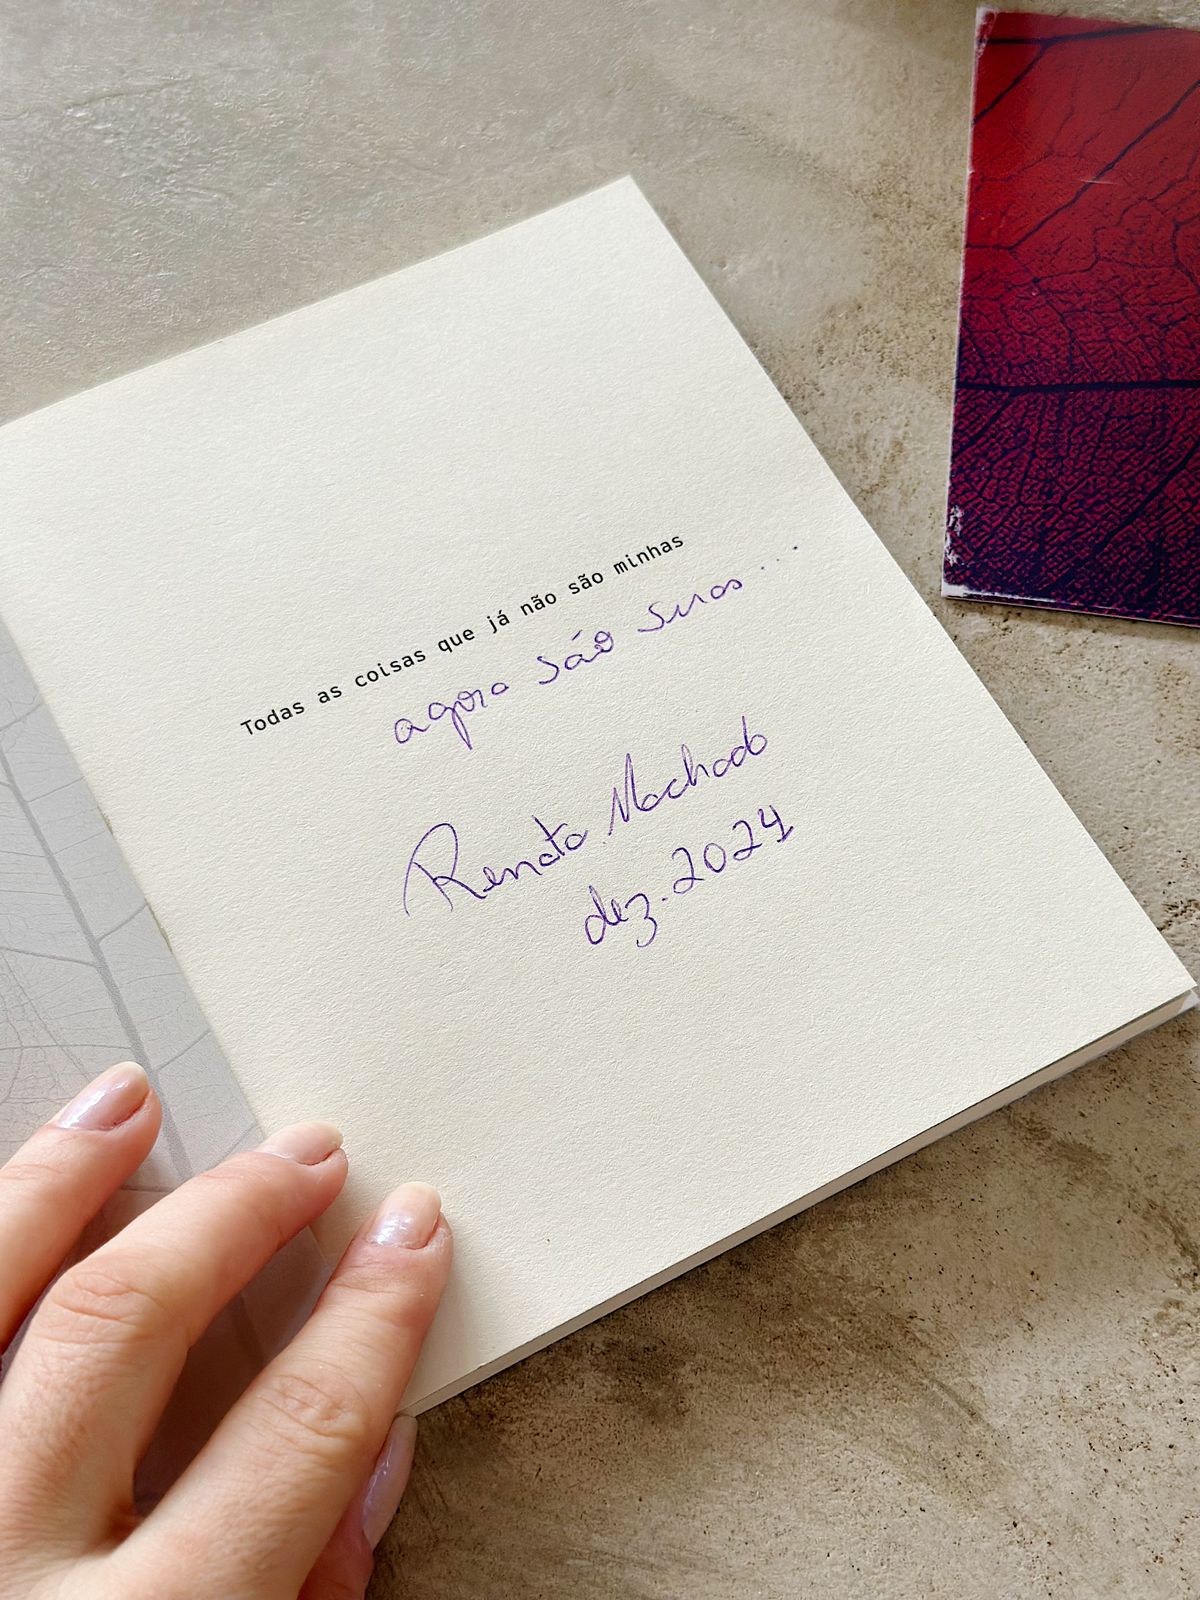 Todas as coisas que já não são minhas
agora são suas...
Renata Machado
dez. 2024